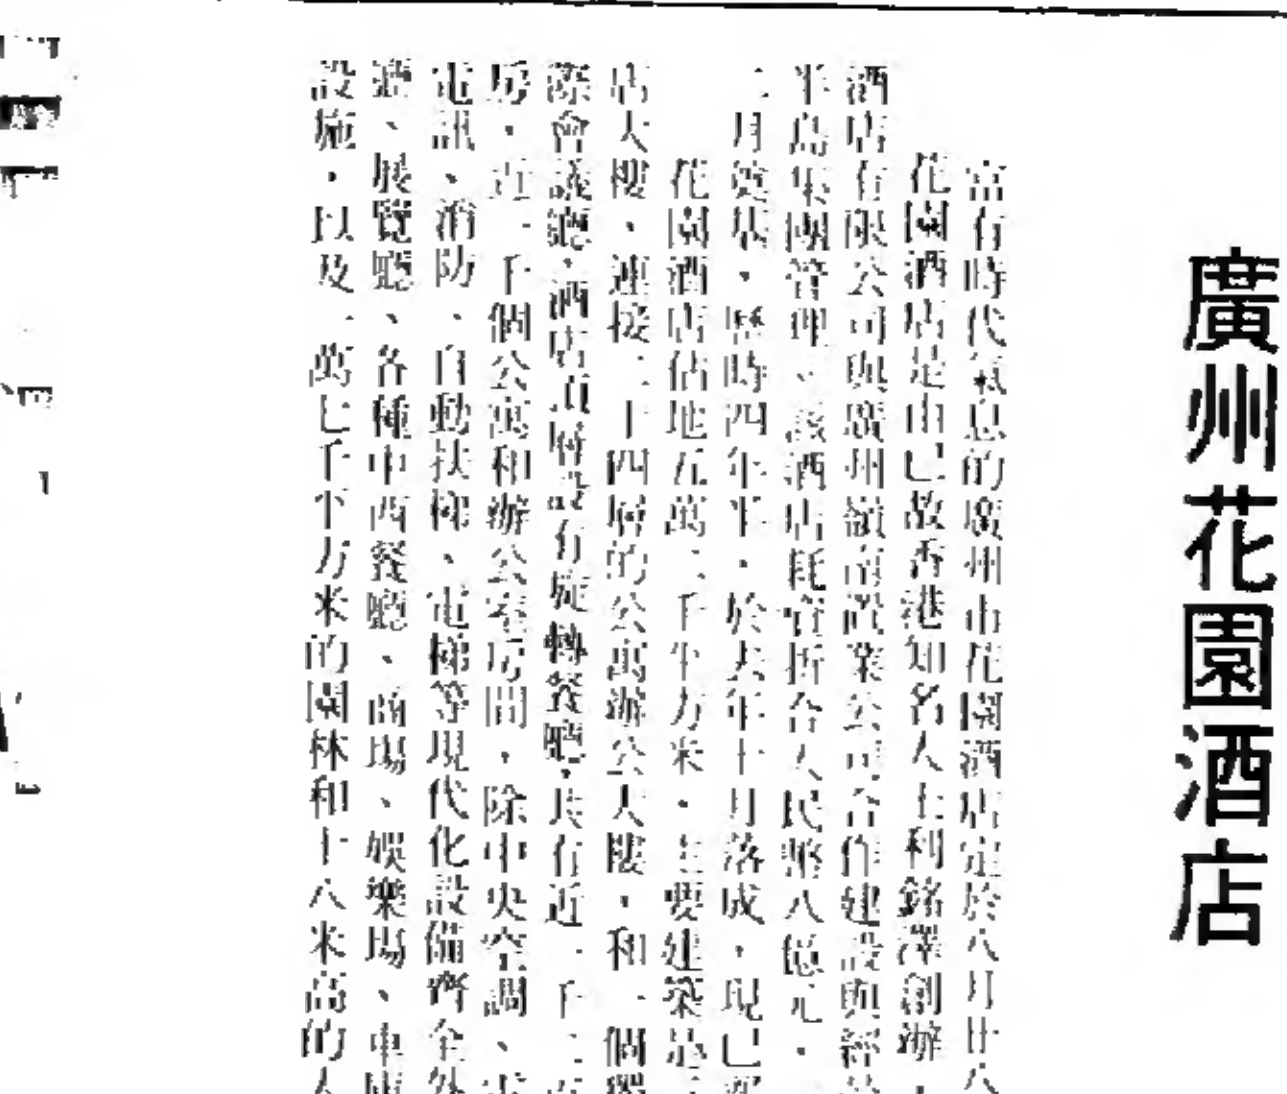 廣州花園酒店
富有時代氣息的廣州市花園酒店定於八月廿八
花園酒店是由已故香港知名人士利銘澤創辦，
酒店有限公司與廣州嶺南置業公司合作建設與經
半島集團管理、該酒店耗資折合人民幣八億元．
二月奠基，歷時四年半．於去年十月落成，現已
花園酒店佔地五萬二千平方米．主要建築是
店大樓，連接二十四層的公寓辦公大樓，和一個
際會議廳，酒店頂層設有旋轉餐廳，共有近一千二
房，近一千個公寓和辦公室房間，除中央空調、
電訊、消防、自動扶梯、電梯等現代化設備齊全外
、展覽廳、各種中西餐廳、商場、娛樂場、車庫
設施，以及二萬七千平方米的園林和十八米高的人